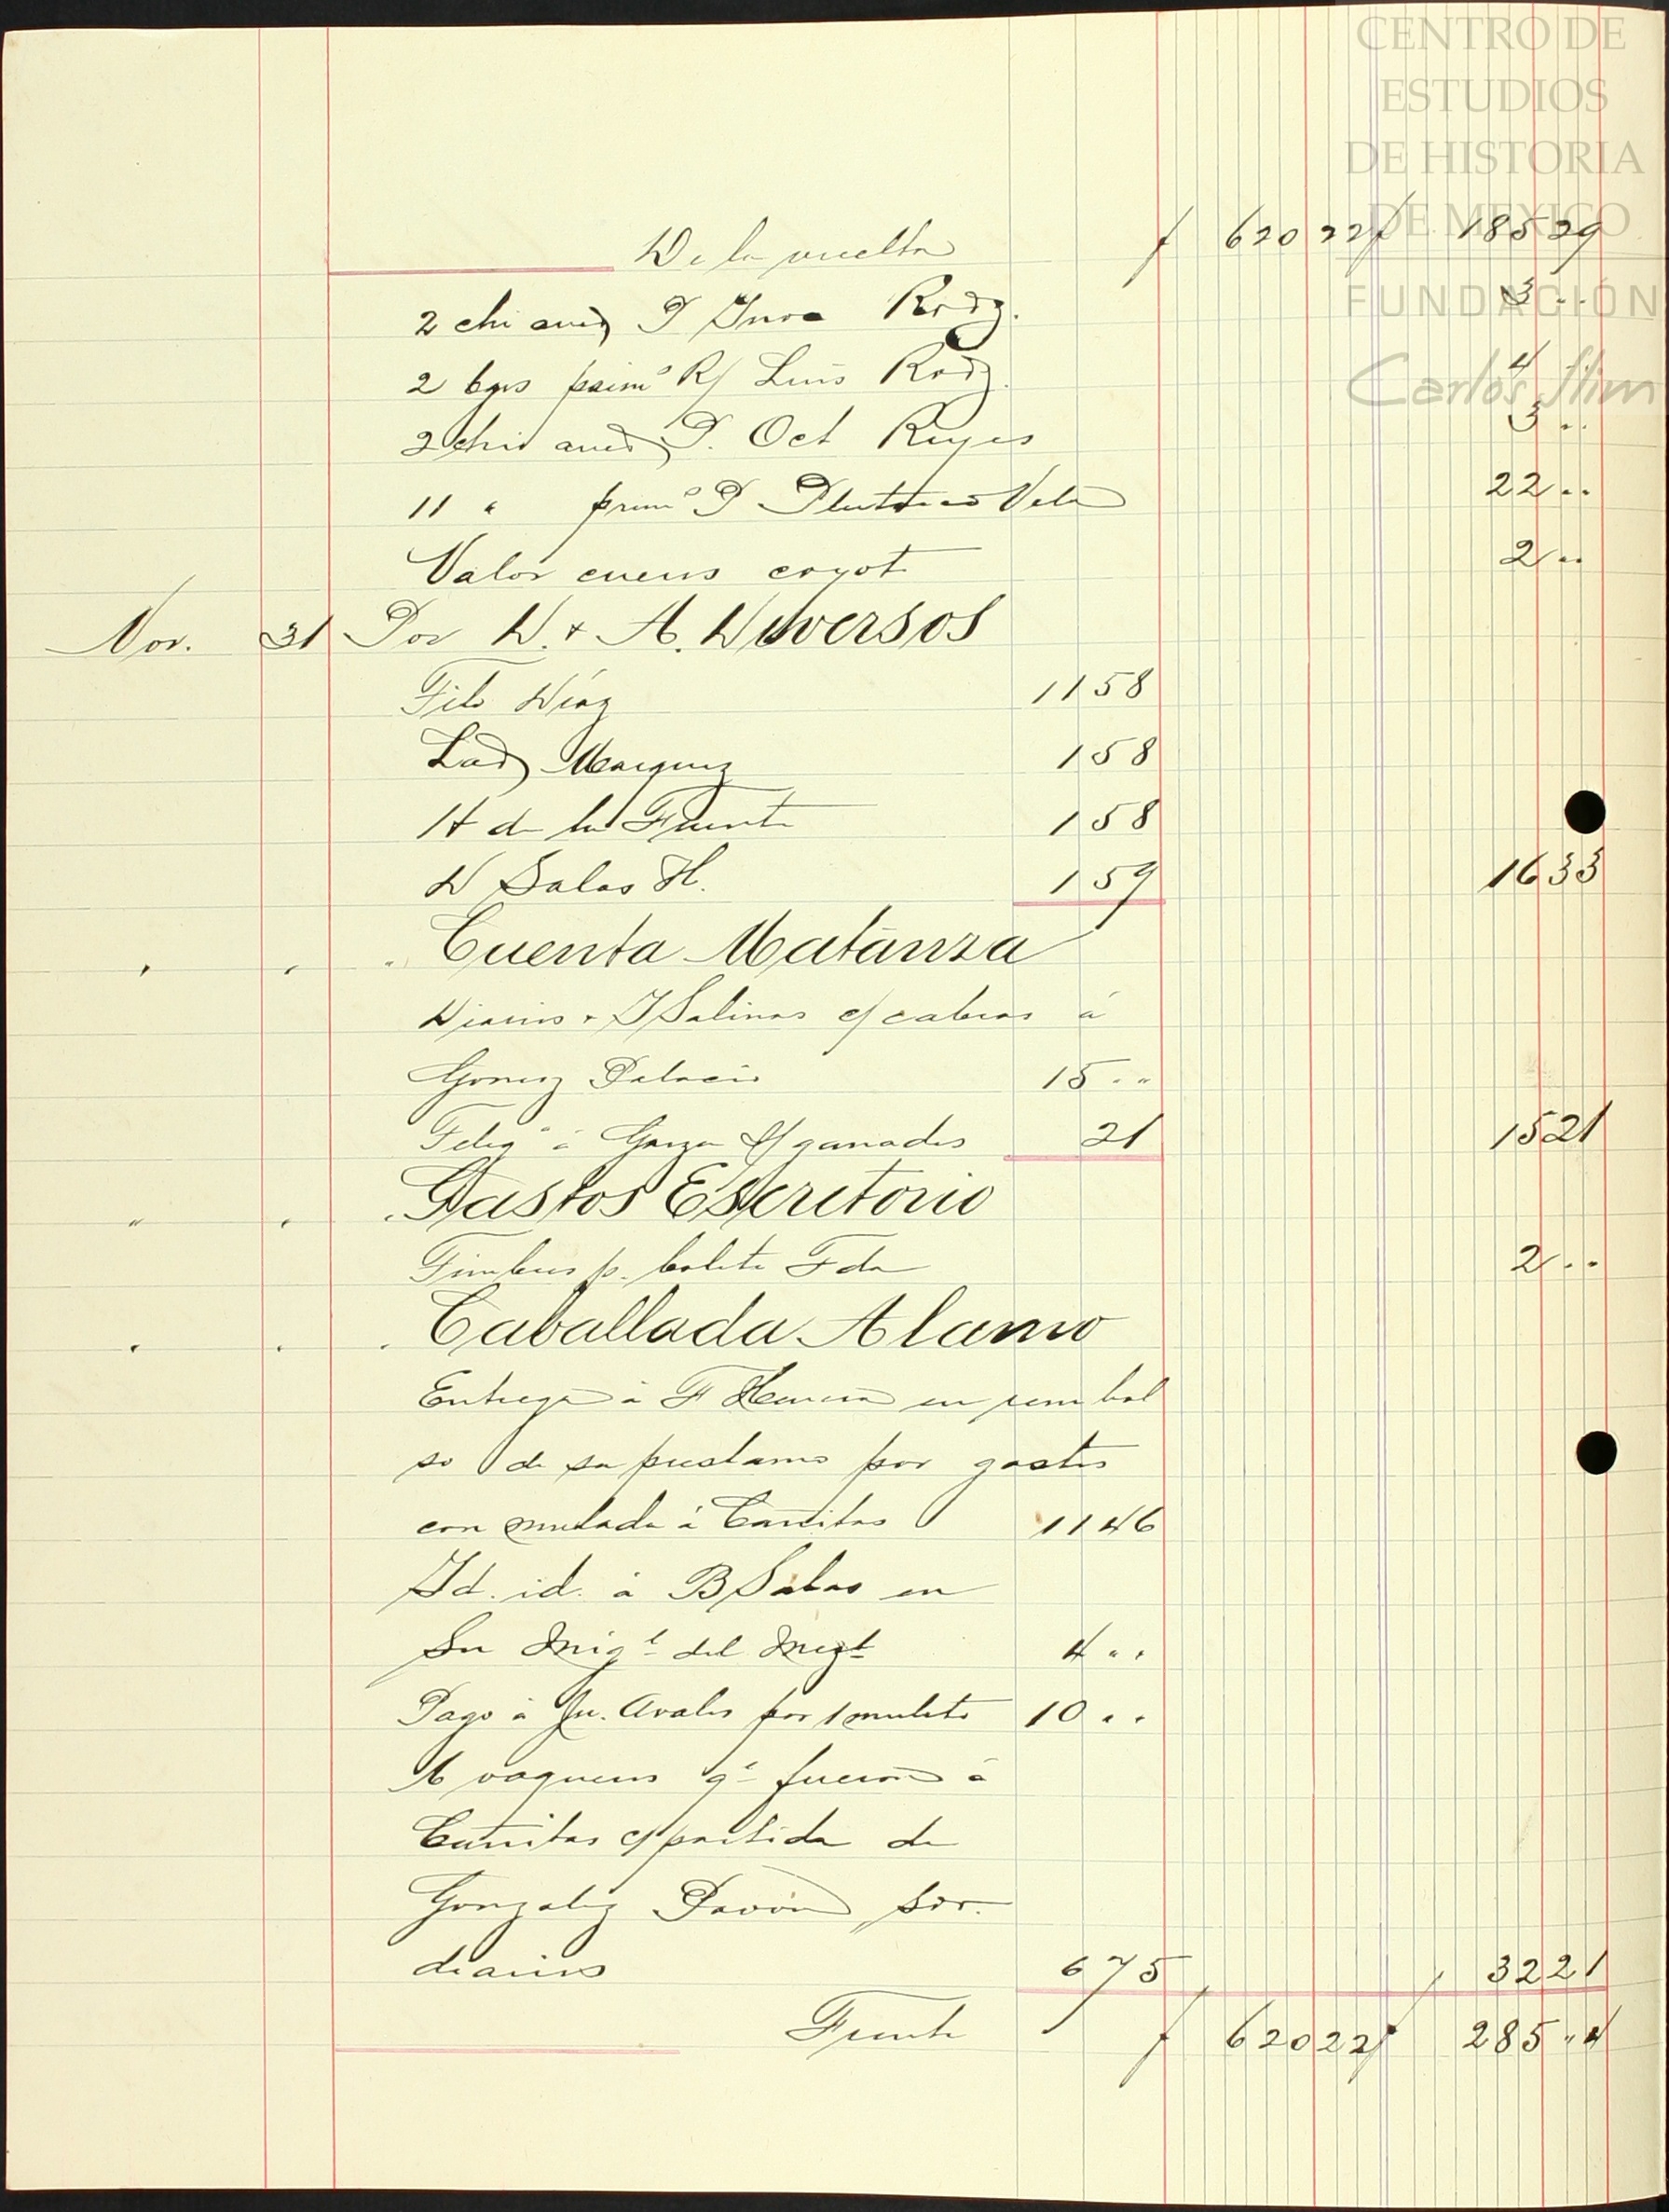 CENTRO DE
ESTUDIOS
DE HISTORIA
DE MEXICO
FUNDACIÓN
Carlos Slim
De la vuelta $ 620 22 $ 185 29
2 chi D Rodz. 3 ..
2 R/ Luis Rodz. 4 ..
2 chi D. Oct Reyes 3 ..
11 " prim° D Vela 22 ..
Valor cueros coyot 2 ..
Nov. 31 Por D. & A. Diversos
Filo Díaz 11 58
Lad Marquez 1 58
H de la Fuente 1 58
D Salas H. 1 59 16 33
" " " Cuenta Matanza
Diarios a J Salinas c/ cabras á
Gomez Palacio 15 ..
á Garza s/ ganados 21 15 21
" " " Gastos Escritorio
Timbres p. boleta Fda 2 ..
" " " Caballada Alamo
Entregado á F en rembol
so de su prestamo por gastos
con mulada á Cañitas 11 46
Id. id. á B Salas en
Sn Mig^l del Mezt 4 ..
Pago á Ju. Avalos por 1 muleto 10 ..
A vaqueros q^e fueron á
Cañitas c/ partida de
Gonzalez Pavón por
diarios 6 75 32 21
Frente $ 620 22 $ 285 " 4